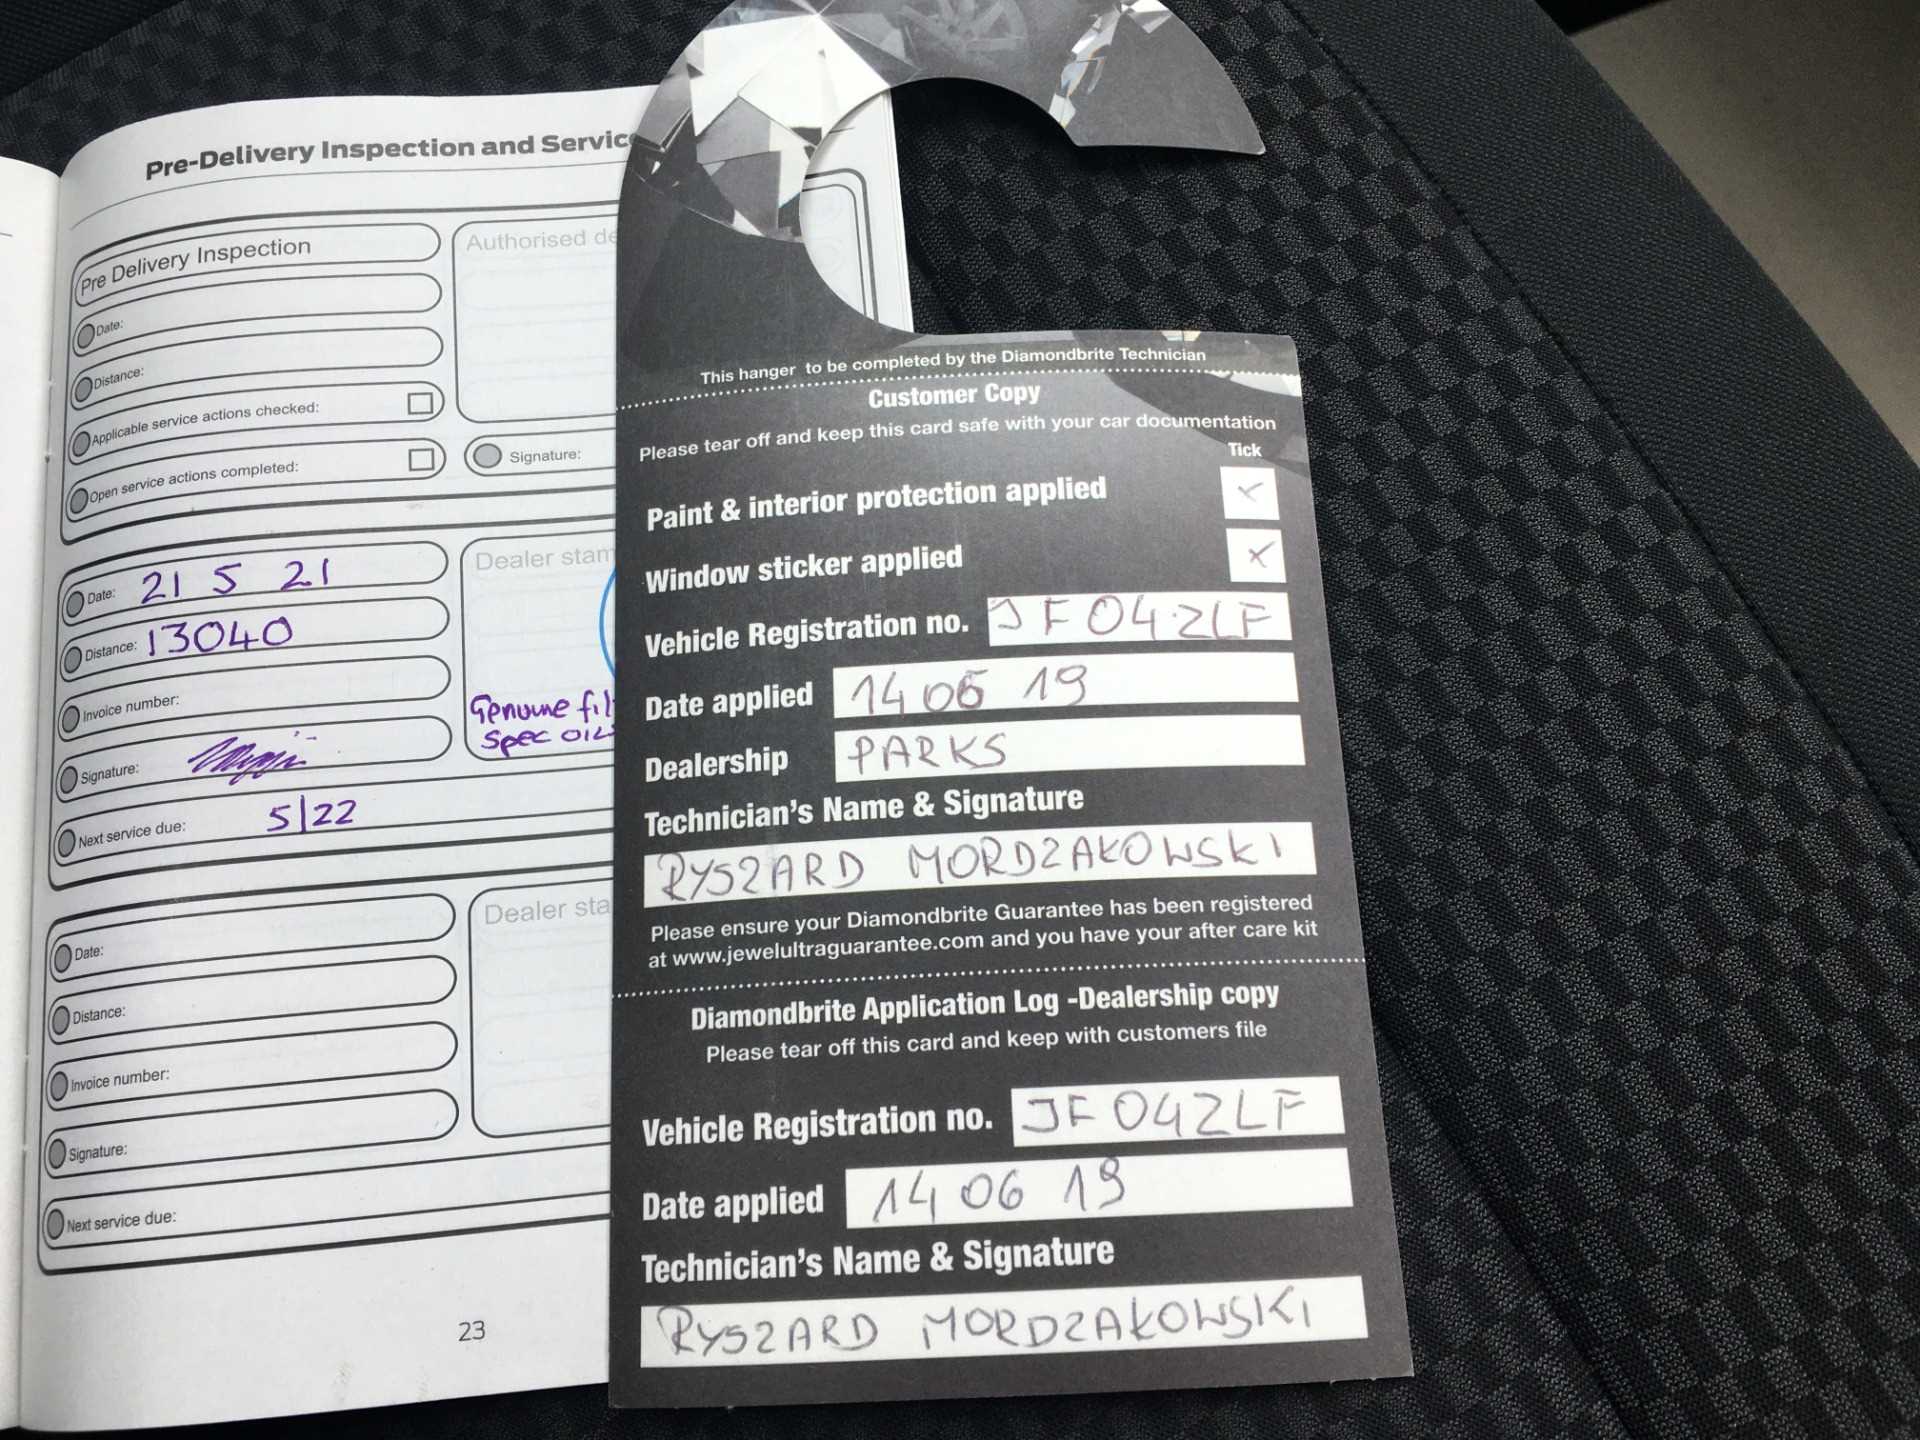 Pre-Delivery Inspection and Servic
Pre Delivery Inspection
Date:
Distance:
Applicable service actions checked:
Open service actions completed:
Authorised de
Signature:
Date: 21 5 21
Distance: 13040
Invoice number:
Signature:
Next service due: 5/22
Dealer stam
Genuine fil
Spec oils
Date:
Distance:
Invoice number:
Signature:
Next service due:
Dealer sta
23
This hanger to be completed by the Diamondbrite Technician
Customer Copy
Please tear off and keep this card safe with your car documentation
Tick
Paint & interior protection applied
Window sticker applied
Vehicle Registration no. JF04ZLF
Date applied 14 06 19
Dealership PARKS
Technician's Name & Signature
RYSZARD MORDZAKOWSKI
Please ensure your Diamondbrite Guarantee has been registered
at www.jewelultraguarantee.com and you have your after care kit
Diamondbrite Application Log -Dealership copy
Please tear off this card and keep with customers file
Vehicle Registration no. JF04ZLF
Date applied 14 06 19
Technician's Name & Signature
RYSZARD MORDZAKOWSKI